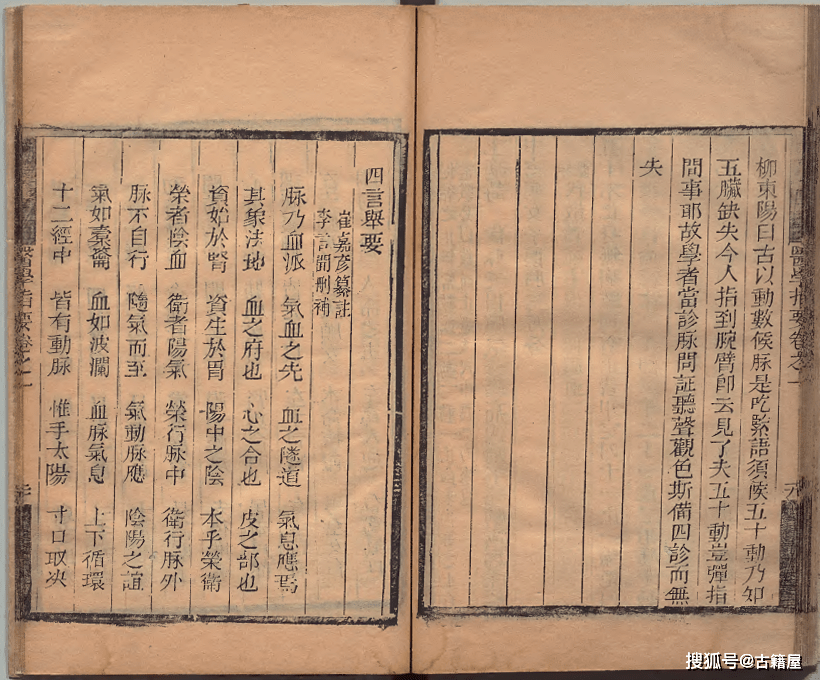 柳東陽曰古以動數候脉是吃緊語須候五十動乃知
五臟缺失今人指到腕臂卽云見了夫五十動豈彈指
間事耶故學者當診脉問証聽聲觀色斯備四診而無
失
醫學指要卷之一
四言舉要
崔嘉彥纂註
李言聞刪補
脉乃血派 氣血之先 血之隧道 氣息應焉
其象法地 血之府也 心之合也 皮之部也
資始於腎 資生於胃 陽中之陰 本乎榮衛
榮者陰血 衛者陽氣 榮行脉中 衛行脉外
脉不自行 隨氣而至 氣動脉應 陰陽之誼
氣如橐籥 血如波瀾 血脉氣息 上下循環
十二經中 皆有動脉 惟手太陽 寸口取决
醫學指要卷之一
搜狐号@古籍屋